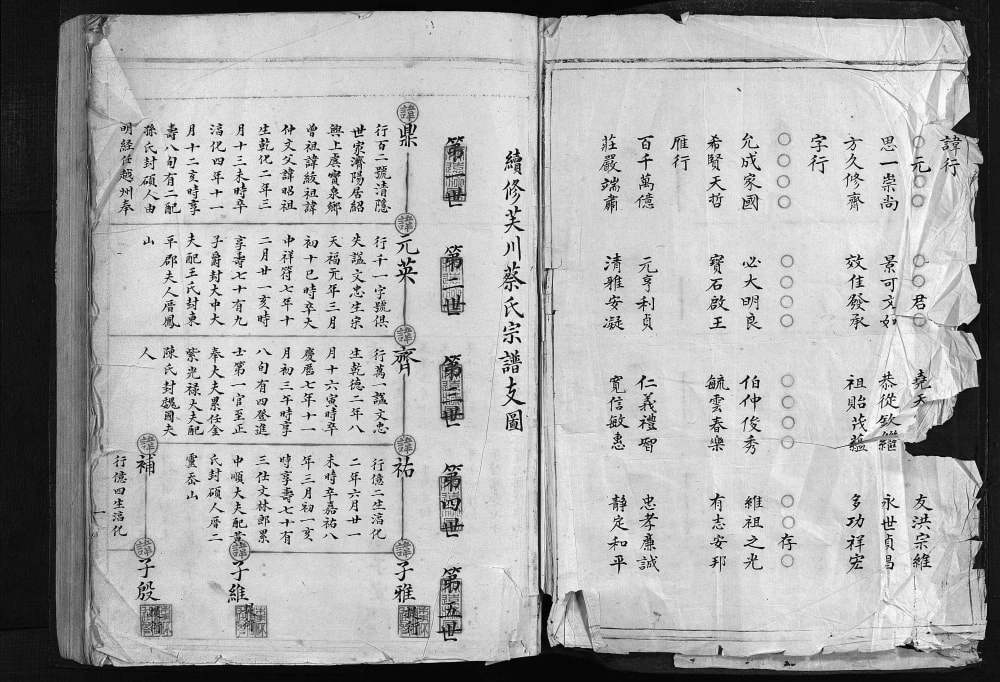 諱行
○元○○　○○君○　堯天　友洪宗維
思一崇尚　景可文如　恭從欽繼　永世貞昌
方久修齊　效佳發承　祖貽茂蘊　多功祥宏
字行
○○○○　○○○○　○○○○　○○存○
允成家國　必大明良　伯仲俊秀　維祖之光
希賢天哲　寶石啟王　毓雲春樂　有志安邦
雁行
百千萬億　元亨利貞　仁義禮智　忠孝廉誠
莊嚴端肅　清雅安凝　寬信敏惠　靜定和平
續修芙川蔡氏宗譜支圖
第一世
諱鼎
行百二號清隱
世家濟陽居紹
興上虞寶泉鄉
曾祖諱綏祖諱
仲文父諱昭祖
生乾化二年三
月十三未時卒
淳化四年十一
月十二亥時享
壽八旬有二配
孫氏封碩人由
明經任越州奉
第二世
諱元英
行千一字號俱
失諡文忠生宋
天福元年三月
初十巳時卒大
中祥符七年十
二月廿一亥時
享壽七十有九
子爵封大中大
夫配王氏封東
平郡夫人厝鳳
山
第三世
諱齊
行萬一諡文忠
生乾德二年八
月十六寅時卒
慶曆七年十一
月初三午時享
八旬有四登進
士第一官至正
奉大夫累任金
紫光祿大夫配
陳氏封魏國夫
人
第四世
諱祐
行億二生淳化
二年六月廿一
未時卒嘉祐八
年三月初一亥
時享壽七十有
三仕文林郎累
中順大夫配
氏封碩人厝二
靈岙山
諱補
行億四生淳化
第五世
諱子雅
提行
諱子維
提行
諱子殷
提行
一